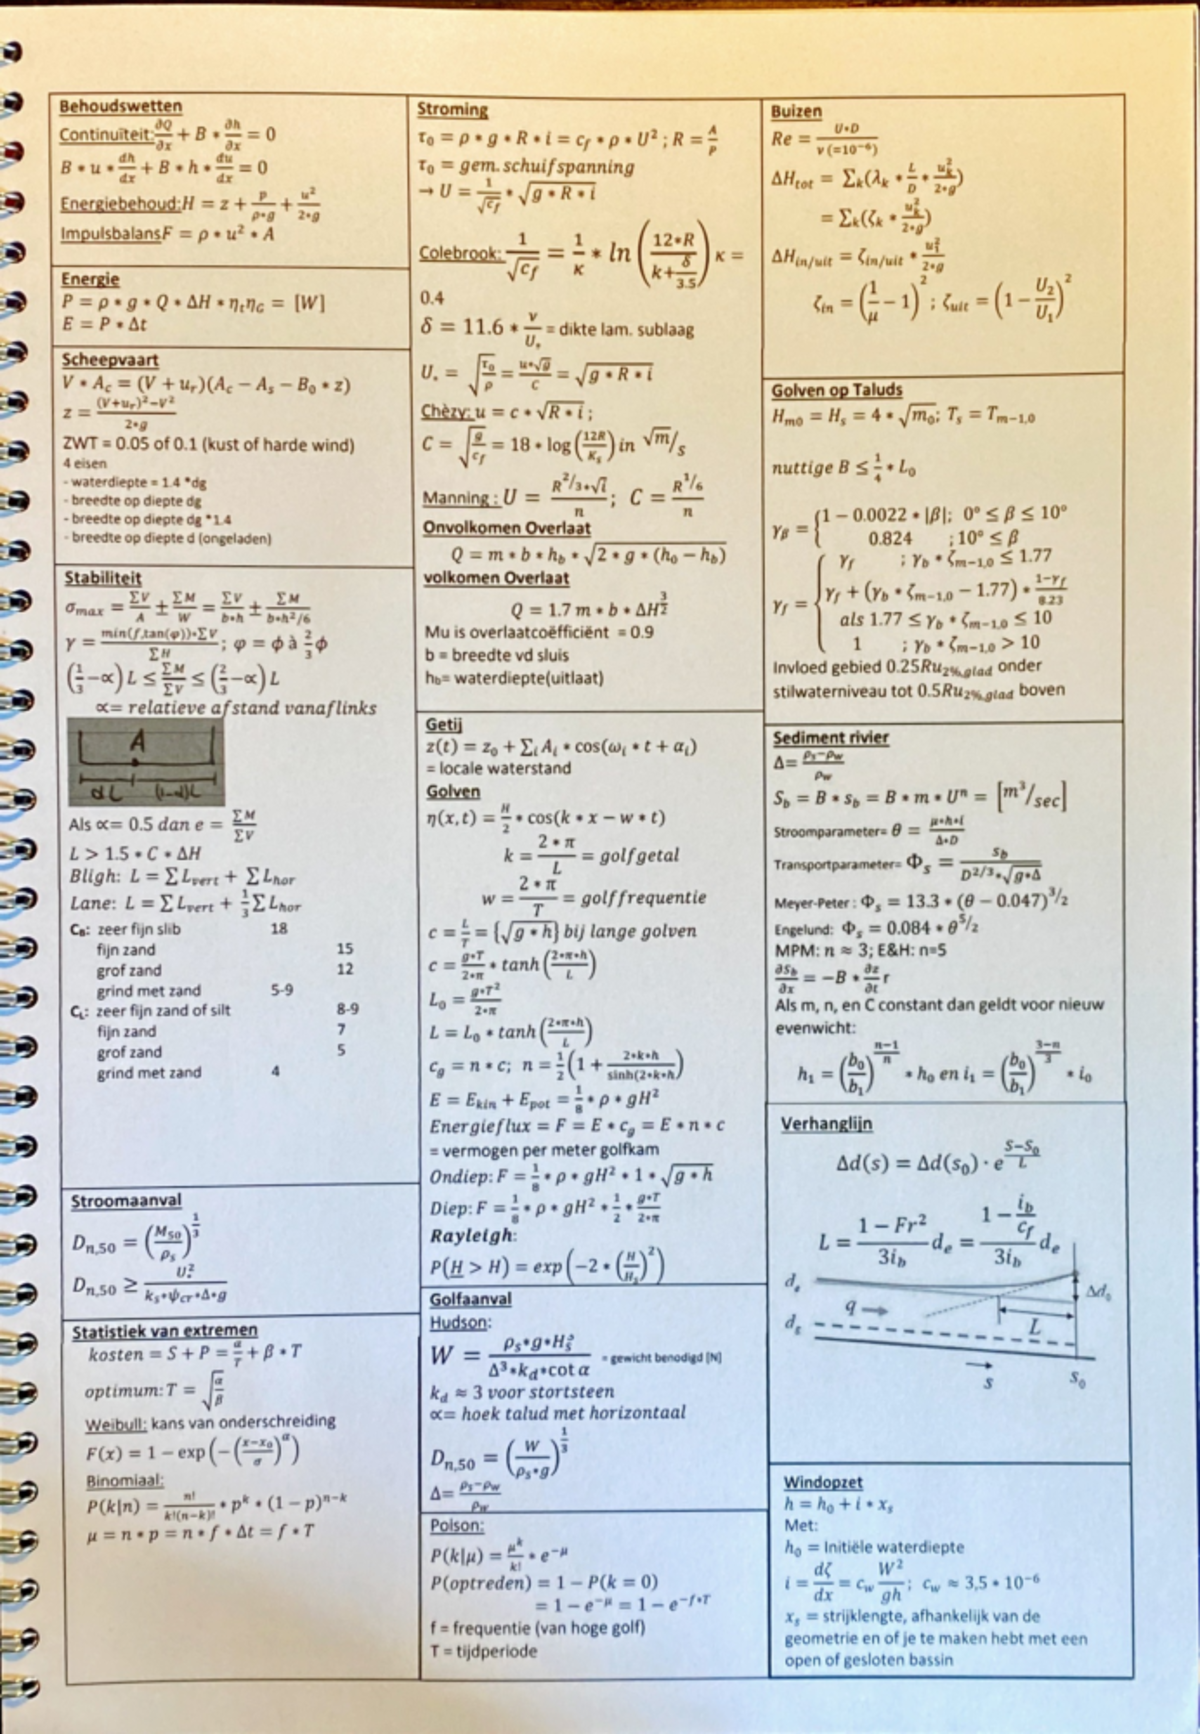 Behoudswetten
Continuïteit: ∂Q/∂x + B * ∂h/∂x = 0
B * u * dh/dx + B * h * du/dx = 0
Energiebehoud: H = z + p/(ρ*g) + u²/(2*g)
Impulsbalans F = ρ * u² * A
Energie
P = ρ * g * Q * ΔH * ηₜη_G = [W]
E = P * Δt
Scheepvaart
V * A_c = (V + u_r)(A_c − A_s − B₀ * z)
z = ((V+u_r)²−V²)/(2*g)
ZWT = 0.05 of 0.1 (kust of harde wind)
4 eisen
- waterdiepte = 1.4 *dg
- breedte op diepte dg
- breedte op diepte dg *1.4
- breedte op diepte d (ongeladen)
Stabiliteit
σ_max = ΣV/A ± ΣM/W = ΣV/(b*h) ± ΣM/(b*h²/6)
γ = min(f,tan(φ))*ΣV/ΣH ; φ = ϕ à 2/3 ϕ
(1/3 −∝) L ≤ ΣM/ΣV ≤ (2/3 −∝) L
∝= relatieve afstand vanaf links
A
αL (1-α)L
Als ∝= 0.5 dan e = ΣM/ΣV
L > 1.5 * C * ΔH
Bligh: L = ΣL_vert + ΣL_hor
Lane: L = ΣL_vert + 1/3 ΣL_hor
C_B: zeer fijn slib 18
fijn zand 15
grof zand 12
grind met zand 5-9
C_L: zeer fijn zand of silt 8-9
fijn zand 7
grof zand 5
grind met zand 4
Stroomaanval
D_n,50 = (M₅₀/ρ_s)^(1/3)
D_n,50 ≥ U_*²/(k_s*ψ_cr*Δ*g)
Statistiek van extremen
kosten = S + P = α/T + β * T
optimum: T = √(α/β)
Weibull: kans van onderschreiding
F(x) = 1 − exp(−((x−x₀)/σ)^α)
Binomiaal:
P(k|n) = n!/(k!(n−k)!) * p^k * (1 − p)^(n−k)
μ = n * p = n * f * Δt = f * T
Stroming
τ₀ = ρ * g * R * i = c_f * ρ * U² ; R = A/P
τ₀ = gem. schuifspanning
→ U = 1/√c_f * √(g * R * i)
Colebrook: 1/√c_f = 1/κ * ln(12*R/(k+δ/3.5)) κ =
0.4
δ = 11.6 * v/U_* = dikte lam. sublaag
U_* = √(τ₀/ρ) = u*√g/C = √(g * R * i)
Chèzy: u = c * √(R * i) ;
C = √(g/c_f) = 18 * log(12R/K_s) in √m/s
Manning : U = R^(2/3)*√i/n ; C = R^(1/6)/n
Onvolkomen Overlaat
Q = m * b * h_b * √(2 * g * (h₀ − h_b))
volkomen Overlaat
Q = 1.7 m * b * ΔH^(3/2)
Mu is overlaatcoëfficiënt = 0.9
b = breedte vd sluis
h_b= waterdiepte(uitlaat)
Getij
z(t) = z₀ + Σᵢ Aᵢ * cos(ωᵢ * t + αᵢ)
= locale waterstand
Golven
η(x,t) = H/2 * cos(k * x − w * t)
k = 2 * π/L = golfgetal
w = 2 * π/T = golffrequentie
c = L/T = {√(g * h)} bij lange golven
c = g*T/(2*π) * tanh(2*π*h/L)
L₀ = g*T²/(2*π)
L = L₀ * tanh(2*π*h/L)
c_g = n * c; n = 1/2 (1 + 2*k*h/sinh(2*k*h))
E = E_kin + E_pot = 1/8 * ρ * gH²
Energieflux = F = E * c_g = E * n * c
= vermogen per meter golfkam
Ondiep: F = 1/8 * ρ * gH² * 1 * √(g * h)
Diep: F = 1/8 * ρ * gH² * 1/2 * g*T/(2*π)
Rayleigh:
P(H > H) = exp(−2 * (H/H_s)²)
Golfaanval
Hudson:
W = ρ_s*g*H_s³/(Δ³*k_d*cot α) = gewicht benodigd [N]
k_d ≈ 3 voor stortsteen
∝= hoek talud met horizontaal
D_n,50 = (W/(ρ_s*g))^(1/3)
Δ= (ρ_s−ρ_w)/ρ_w
Poison:
P(k|μ) = μ^k/k! * e^(−μ)
P(optreden) = 1 − P(k = 0)
= 1 − e^(−μ) = 1 − e^(−f*T)
f = frequentie (van hoge golf)
T = tijdperiode
Buizen
Re = U*D/(v (=10⁻⁶))
ΔH_tot = Σ_k(λ_k * L/D * u_k²/(2*g))
= Σ_k(ζ_k * u_k²/(2*g))
ΔH_in/uit = ζ_in/uit * u₁²/(2*g)
ζ_in = (1/μ − 1)² ; ζ_uit = (1 − U₂/U₁)²
Golven op Taluds
H_m0 = H_s = 4 * √m₀; T_s = T_m−1,0
nuttige B ≤ 1/4 * L₀
γ_β = {1 − 0.0022 * |β|; 0° ≤ β ≤ 10°
0.824 ; 10° ≤ β
γ_f ; γ_b * ζ_m−1,0 ≤ 1.77
γ_f = { γ_f + (γ_b * ζ_m−1,0 − 1.77) * (1−γ_f)/8.23
als 1.77 ≤ γ_b * ζ_m−1,0 ≤ 10
1 ; γ_b * ζ_m−1,0 > 10
Invloed gebied 0.25Ru_2%,glad onder
stilwaterniveau tot 0.5Ru_2%,glad boven
Sediment rivier
Δ= (ρ_s−ρ_w)/ρ_w
S_b = B * s_b = B * m * Uⁿ = [m³/sec]
Stroomparameter= θ = μ*h*i/(Δ*D)
Transportparameter= Φ_s = s_b/(D^(2/3)*√(g*Δ))
Meyer-Peter : Φ_s = 13.3 * (θ − 0.047)^(3/2)
Engelund: Φ_s = 0.084 * θ^(5/2)
MPM: n ≈ 3; E&H: n=5
∂S_b/∂x = −B * ∂z/∂t r
Als m, n, en C constant dan geldt voor nieuw
evenwicht:
h₁ = (b₀/b₁)^((n−1)/n) * h₀ en i₁ = (b₀/b₁)^((3−n)/3) * i₀
Verhanglijn
Δd(s) = Δd(s₀) · e^((S−S₀)/L)
L = (1 − Fr²)/(3i_b) d_e = (1 − i_b/c_f)/(3i_b) d_e
d_e
Δd₀
q
L
d_g
s
s₀
Windopzet
h = h₀ + i * x_s
Met:
h₀ = Initiële waterdiepte
i = dζ/dx = c_w W²/gh ; c_w ≈ 3,5 * 10⁻⁶
x_s = strijklengte, afhankelijk van de
geometrie en of je te maken hebt met een
open of gesloten bassin